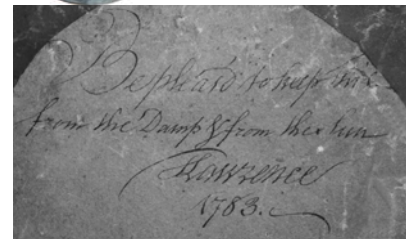 Be pleas'd to keep this
from the Damp & from the Sun
Lawrence
1783.